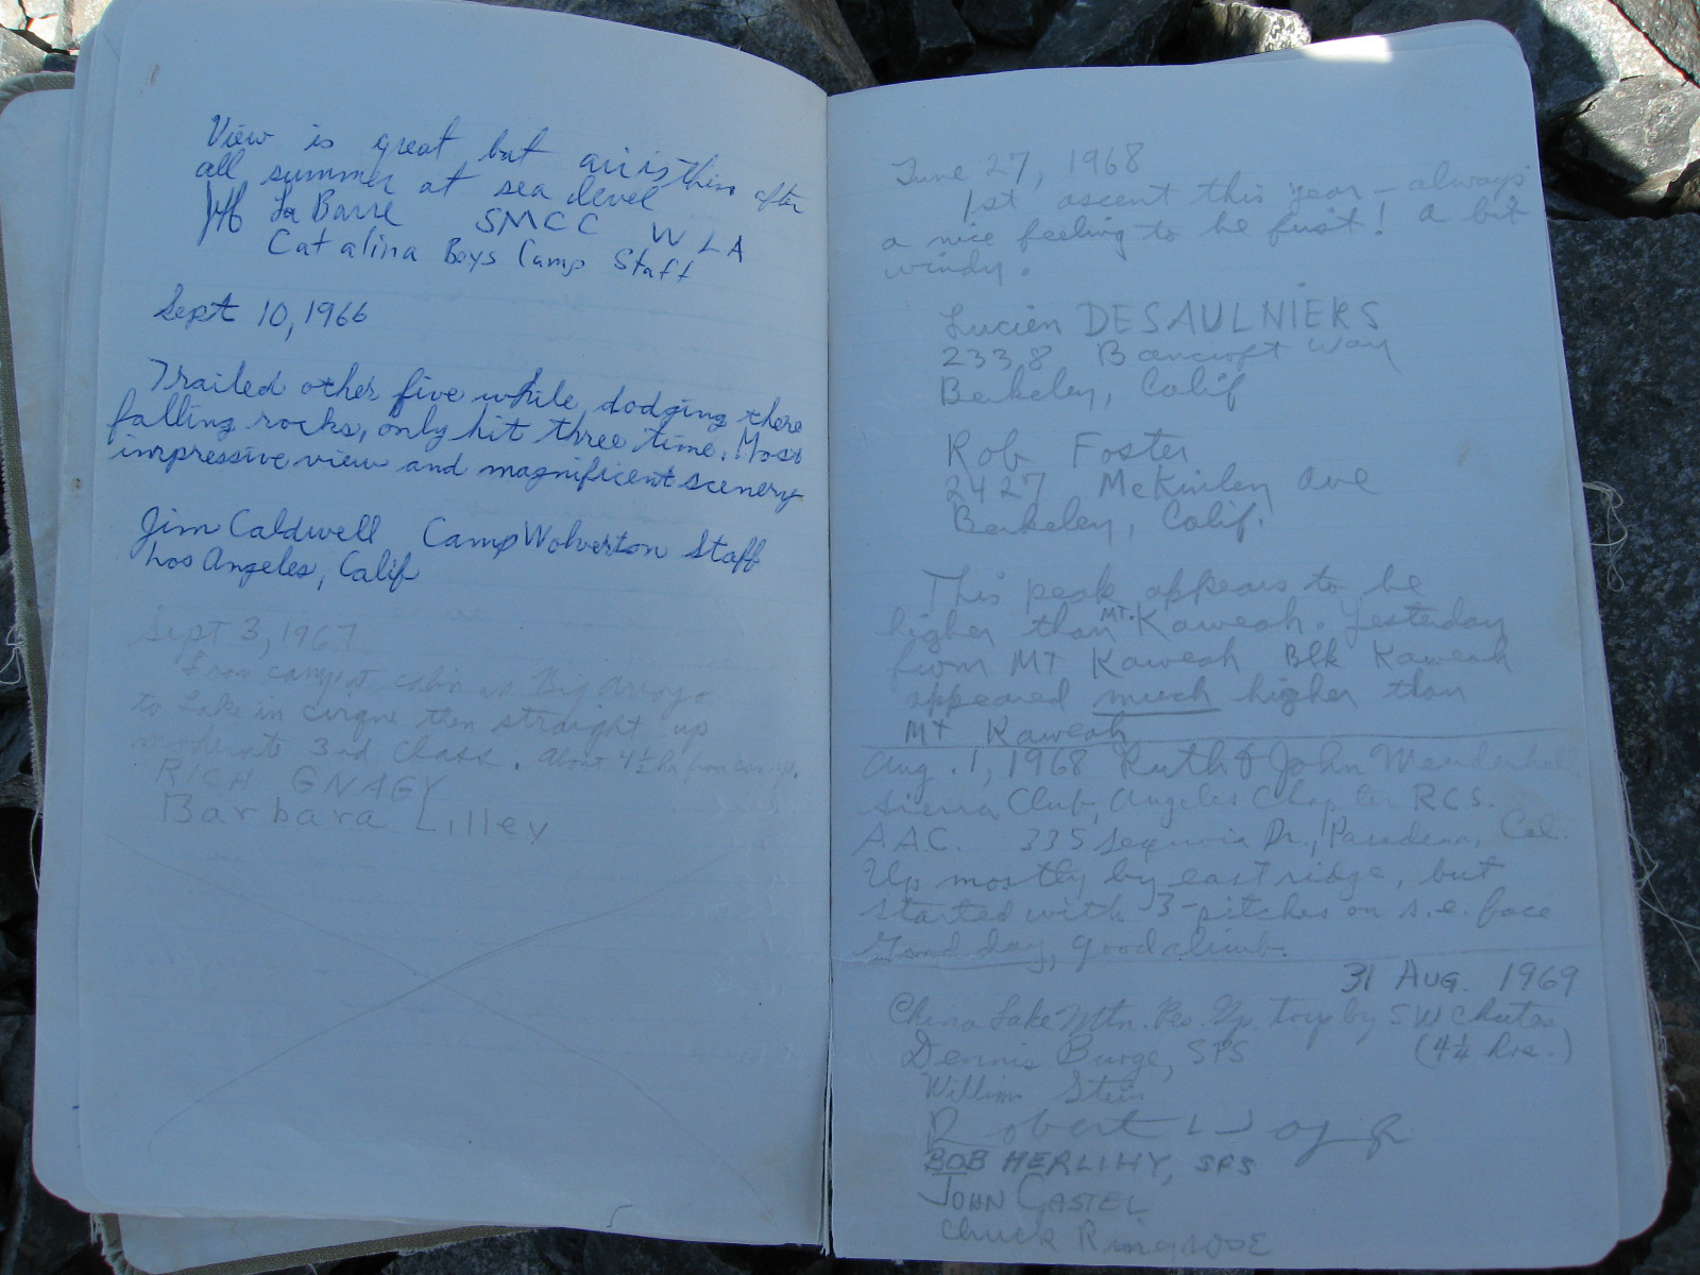 View is great but air is thin after
all summer at sea level
La Barre SMCC WLA
Catalina Boys Camp Staff
Sept 10, 1966
Trailed other five while dodging there
falling rocks, only hit three time. Most
impressive view and magnificent scenery
Jim Caldwell Camp Wolverton Staff
Los Angeles, Calif
Sept 3, 1967
From camp at cabin on Big Arroyo
to Lake in cirque then straight up
moderate 3rd class. About 4½ hr from camp.
RICH GNAGY
Barbara Lilley
June 27, 1968
1st ascent this year - always
a nice feeling to be first! a bit
windy.
Lucien DESAULNIERS
2338 Bancroft Way
Berkeley, Calif
Rob Foster
2427 McKinley Ave
Berkeley, Calif.
This peak appears to be
higher than MT. Kaweah. Yesterday
from MT Kaweah Blk Kaweah
appeared much higher than
MT Kaweah
Aug. 1, 1968 Ruth & John Mendenhall
Sierra Club, Angeles Chapter RCS.
AAC. 335 Sequoia Dr., Pasadena, Cal.
Up mostly by east ridge, but
started with 3-pitches on s.e. face
Good day, good climb.
31 AUG. 1969
China Lake Mtn. Res. Gp. trip by SW Chutes
Dennis Burge, SPS (4¼ hrs.)
William Stein
Robert
BOB HERLIHY, SPS
JOHN CASTEL
Chuck Ringrose